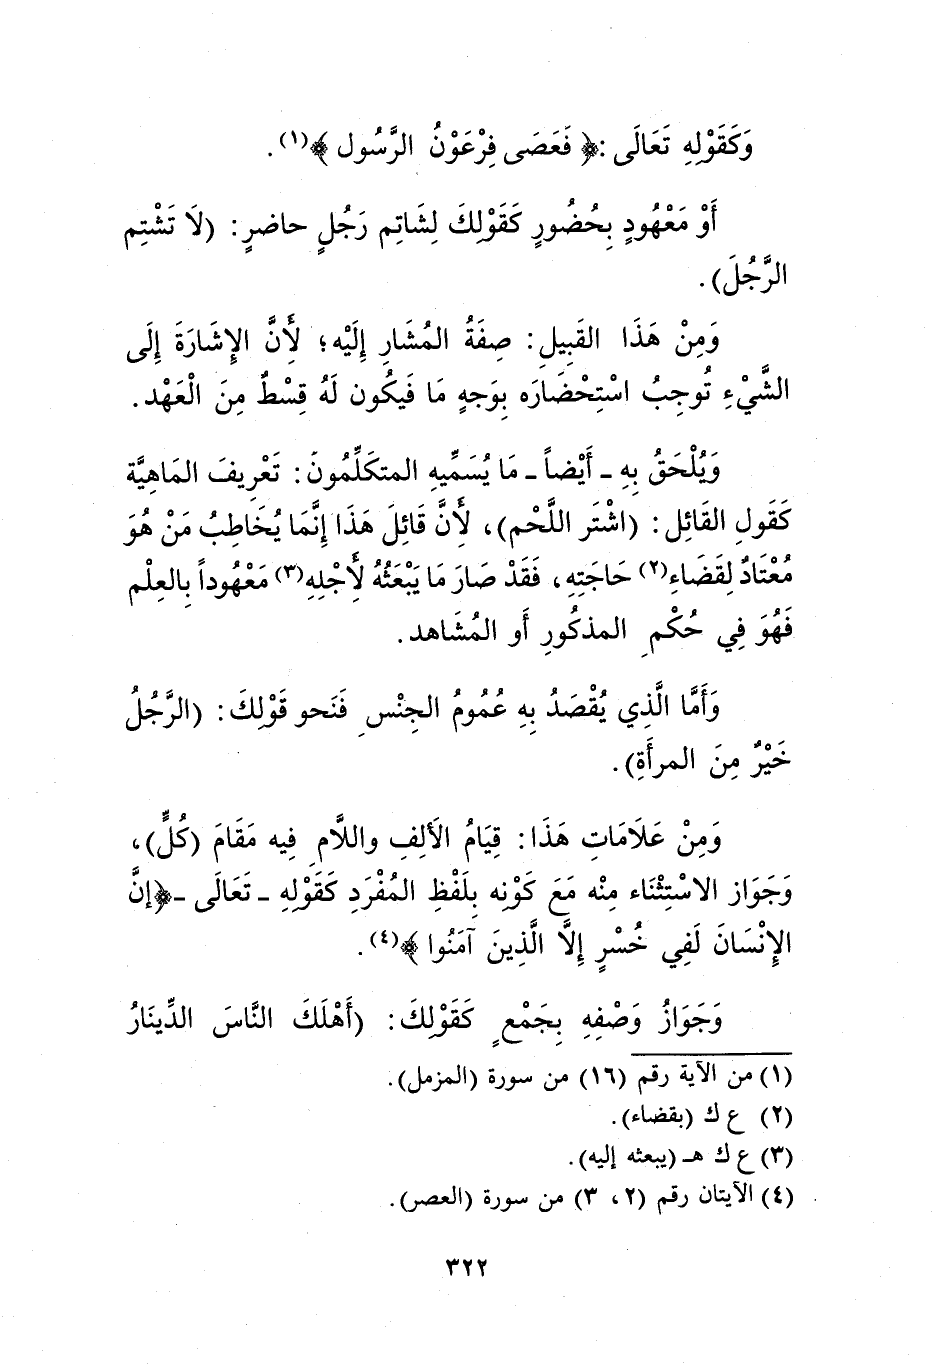 وَكَقَوْلِهِ تَعَالَى :﴿ فَعَصَى فِرْعَوْنُ الرَّسُول ﴾(١) .
أَوْ مَعْهُودٍ بِحُضُورٍ كَقَوْلِكَ لِشَاتِمِ رَجُلٍ حاضرٍ : (لَا تَشْتِم
الرَّجُلَ) .
وَمِنْ هَذَا القَبِيلِ : صِفَةُ المُشَارِ إِلَيْه ؛ لِأَنَّ الإِشَارَةَ إِلَى
الشَّيْءِ تُوجِبُ اسْتِحْضَارَه بِوَجهٍ مَا فَيكُون لَهُ قِسْطٌ مِنَ الْعَهْد .
وَيُلْحَقُ بِهِ ـ أَيْضاً ـ مَا يُسَمِّيهِ المتكَلِّمُونَ : تَعْرِيفَ المَاهِيَّة
كَقَولِ القَائِل : (اشْتَر اللَّحْم) ، لِأَنَّ قَائِلَ هَذَا إِنَّمَا يُخَاطِبُ مَنْ هُوَ
مُعْتَادٌ لِقَضَاءِ(٢) حَاجَتِهِ ، فَقَدْ صَارَ مَا يَبْعَثُهُ لِأَجْلِهِ(٣) مَعْهُوداً بِالعِلْم
فَهُوَ فِي حُكْمِ المذكُورِ أَو المُشَاهد .
وَأَمَّا الَّذِي يُقْصَدُ بِهِ عُمُومُ الجِنْسِ فَنَحو قَوْلِكَ : (الرَّجُلُ
خَيْرٌ مِنَ المرأَةِ) .
وَمِنْ عَلَامَاتِ هَذَا : قِيَامُ الأَلِفِ واللَّامِ فِيه مَقَامَ (كُلٍّ) ،
وَجَوَاز الاسْتِثْنَاء مِنْه مَعَ كَوْنِه بِلَفْظِ المُفْرَدِ كَقَوْلِهِ ـ تَعَالَى ـ ﴿إِنَّ
الإِنْسَانَ لَفِي خُسْرٍ إِلَّا الَّذِينَ آمَنُوا ﴾(٤) .
وَجَوَازُ وَصْفِهِ بِجَمْعٍ كَقَوْلِكَ : (أَهْلَكَ النَّاسَ الدِّينَارُ
(١) من الآية رقم (١٦) من سورة (المزمل) .
(٢) ع ك (بقضاء) .
(٣) ع ك هـ (يبعثه إليه) .
(٤) الآيتان رقم (٢ ، ٣) من سورة (العصر) .
٣٢٢